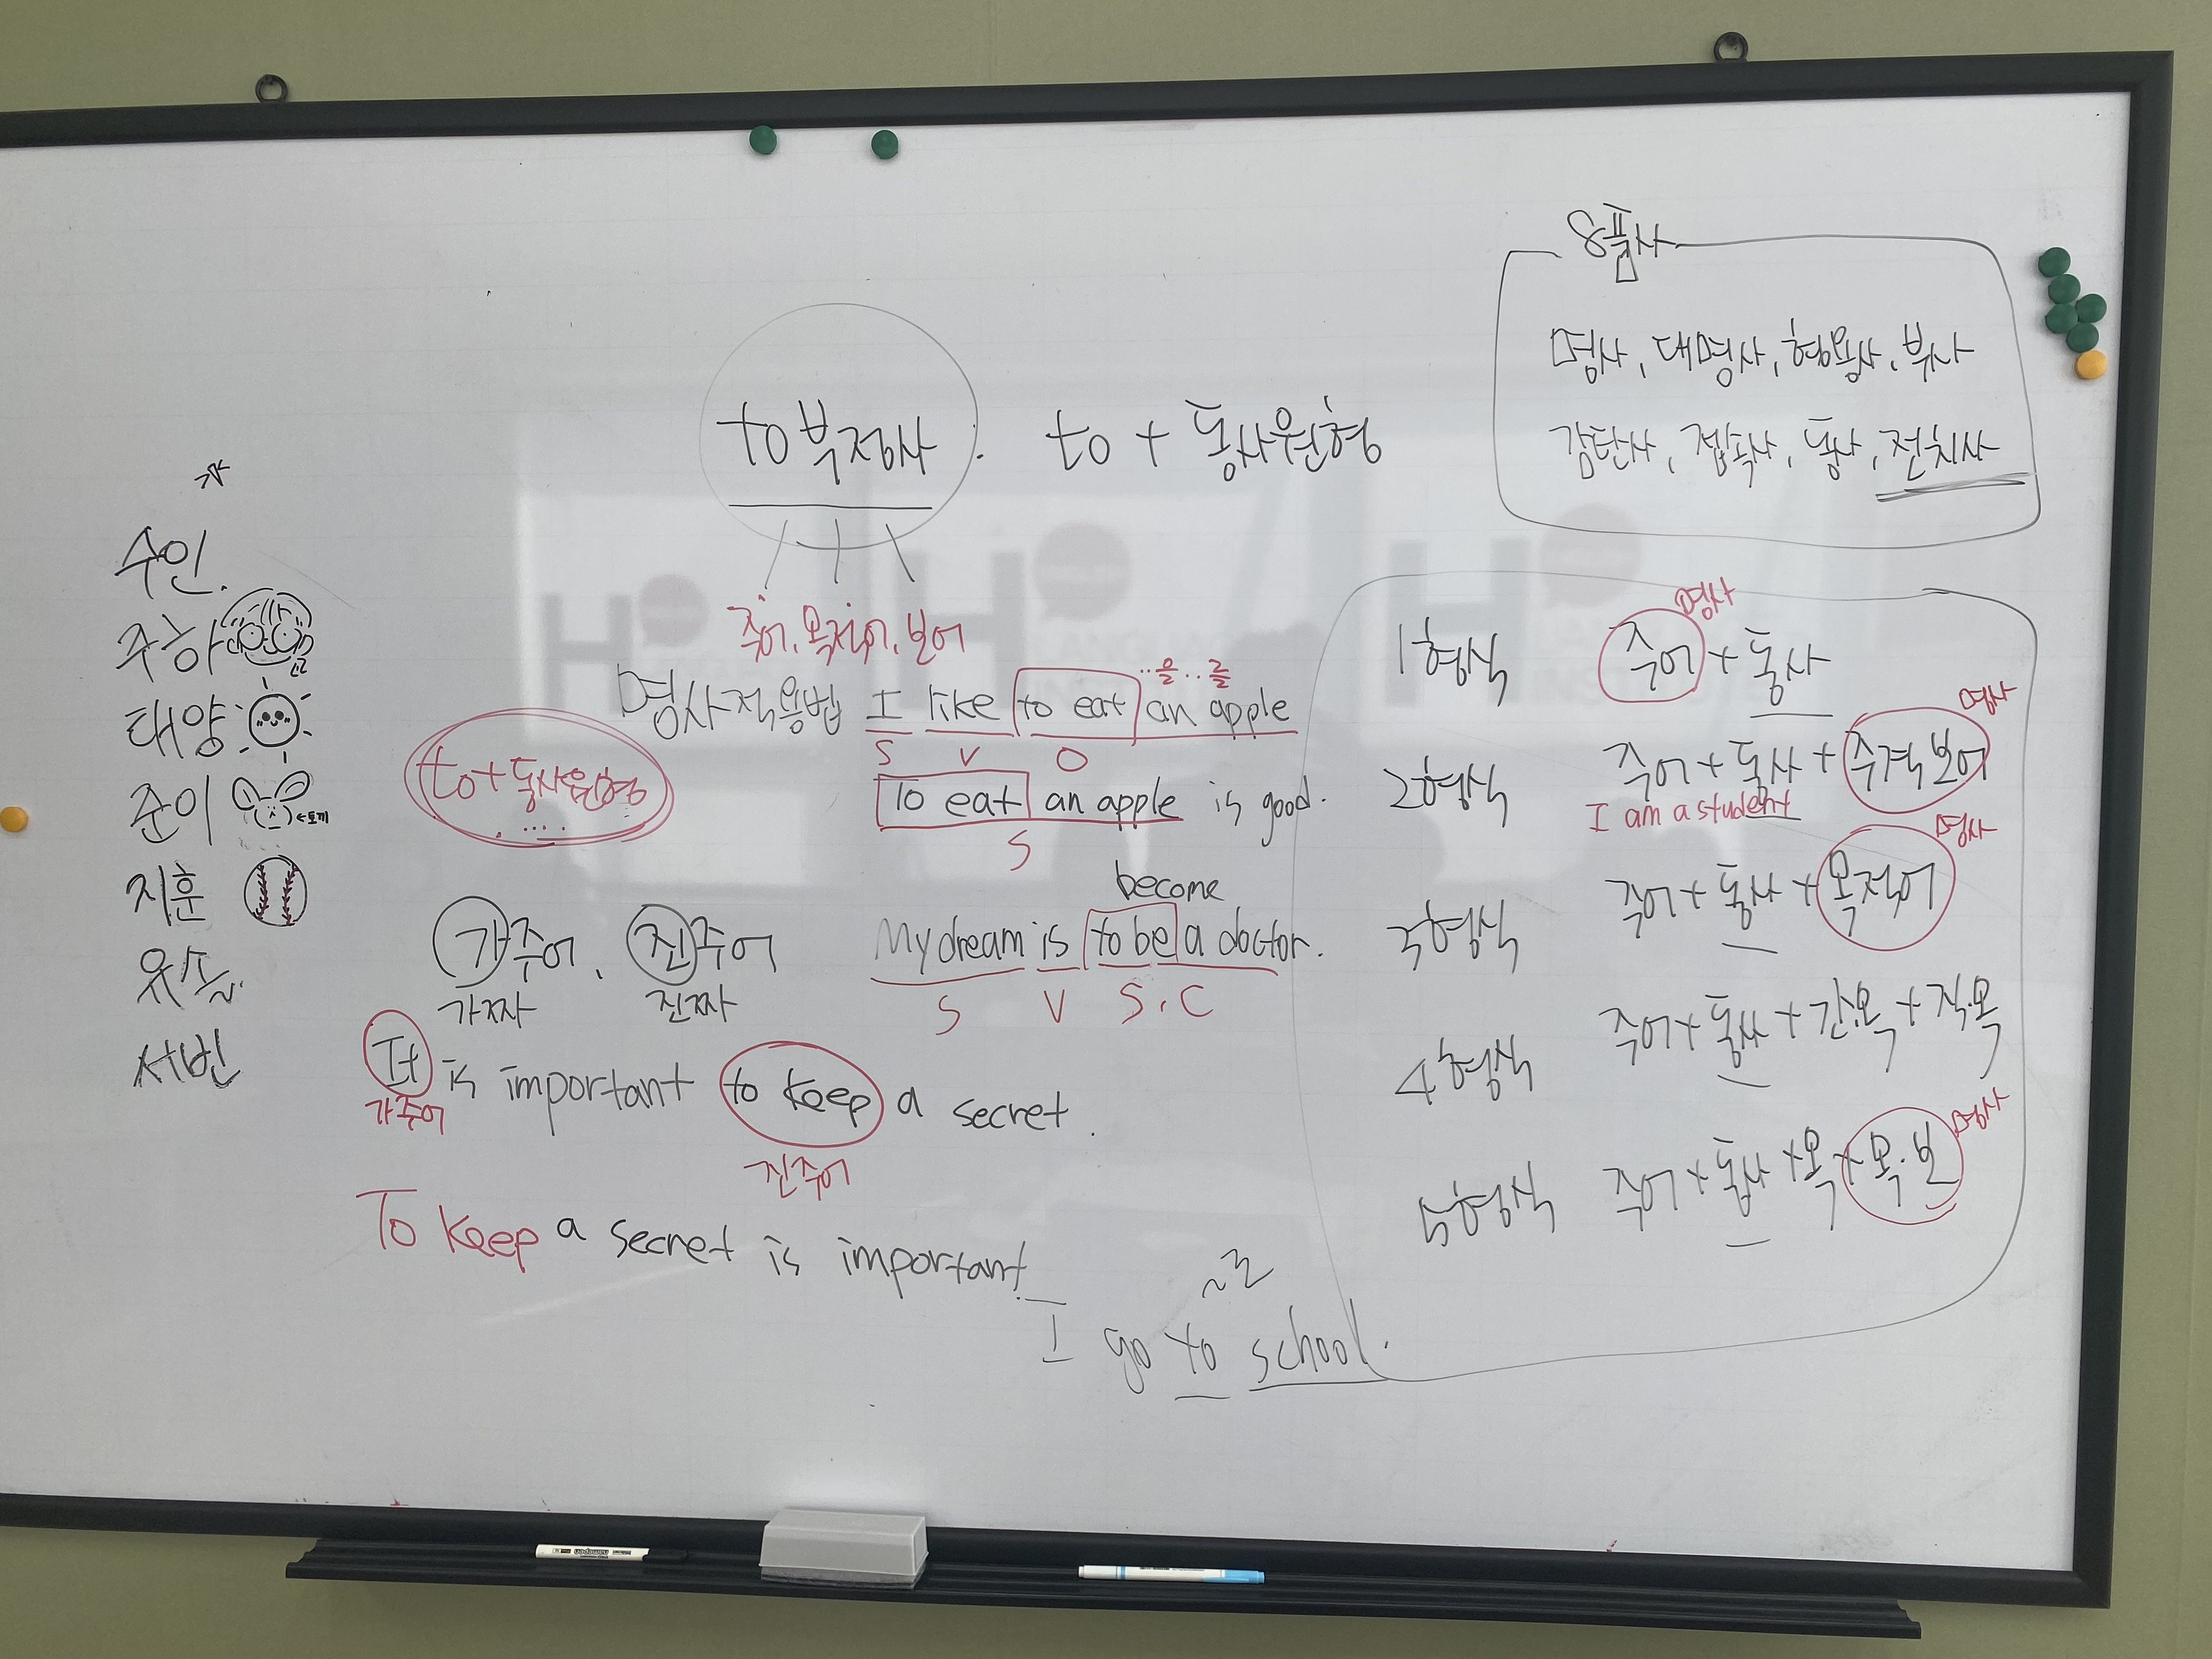 8품사
명사, 대명사, 형용사, 부사
감탄사, 접속사, 동사, 전치사
to부정사 : to + 동사원형
주어, 목적어, 보어
명사적용법 I like to eat an apple
..을..를
S V O
to + 동사원형
To eat an apple is good.
S
become
My dream is to be a doctor.
S V S.C
가주어, 진주어
가짜 진짜
It is important to keep a secret.
가주어 진주어
To keep a secret is important.
~로
I go to school.
수인.
주하
태양
준이 ←토끼
지훈
유솔.
서빈
1형식 주어 + 동사 명사
2형식 주어 + 동사 + 주격보어 명사
I am a student
3형식 주어 + 동사 + 목적어 명사
4형식 주어 + 동사 + 간.목 + 직.목
5형식 주어 + 동사 + 목 + 목.보 명사